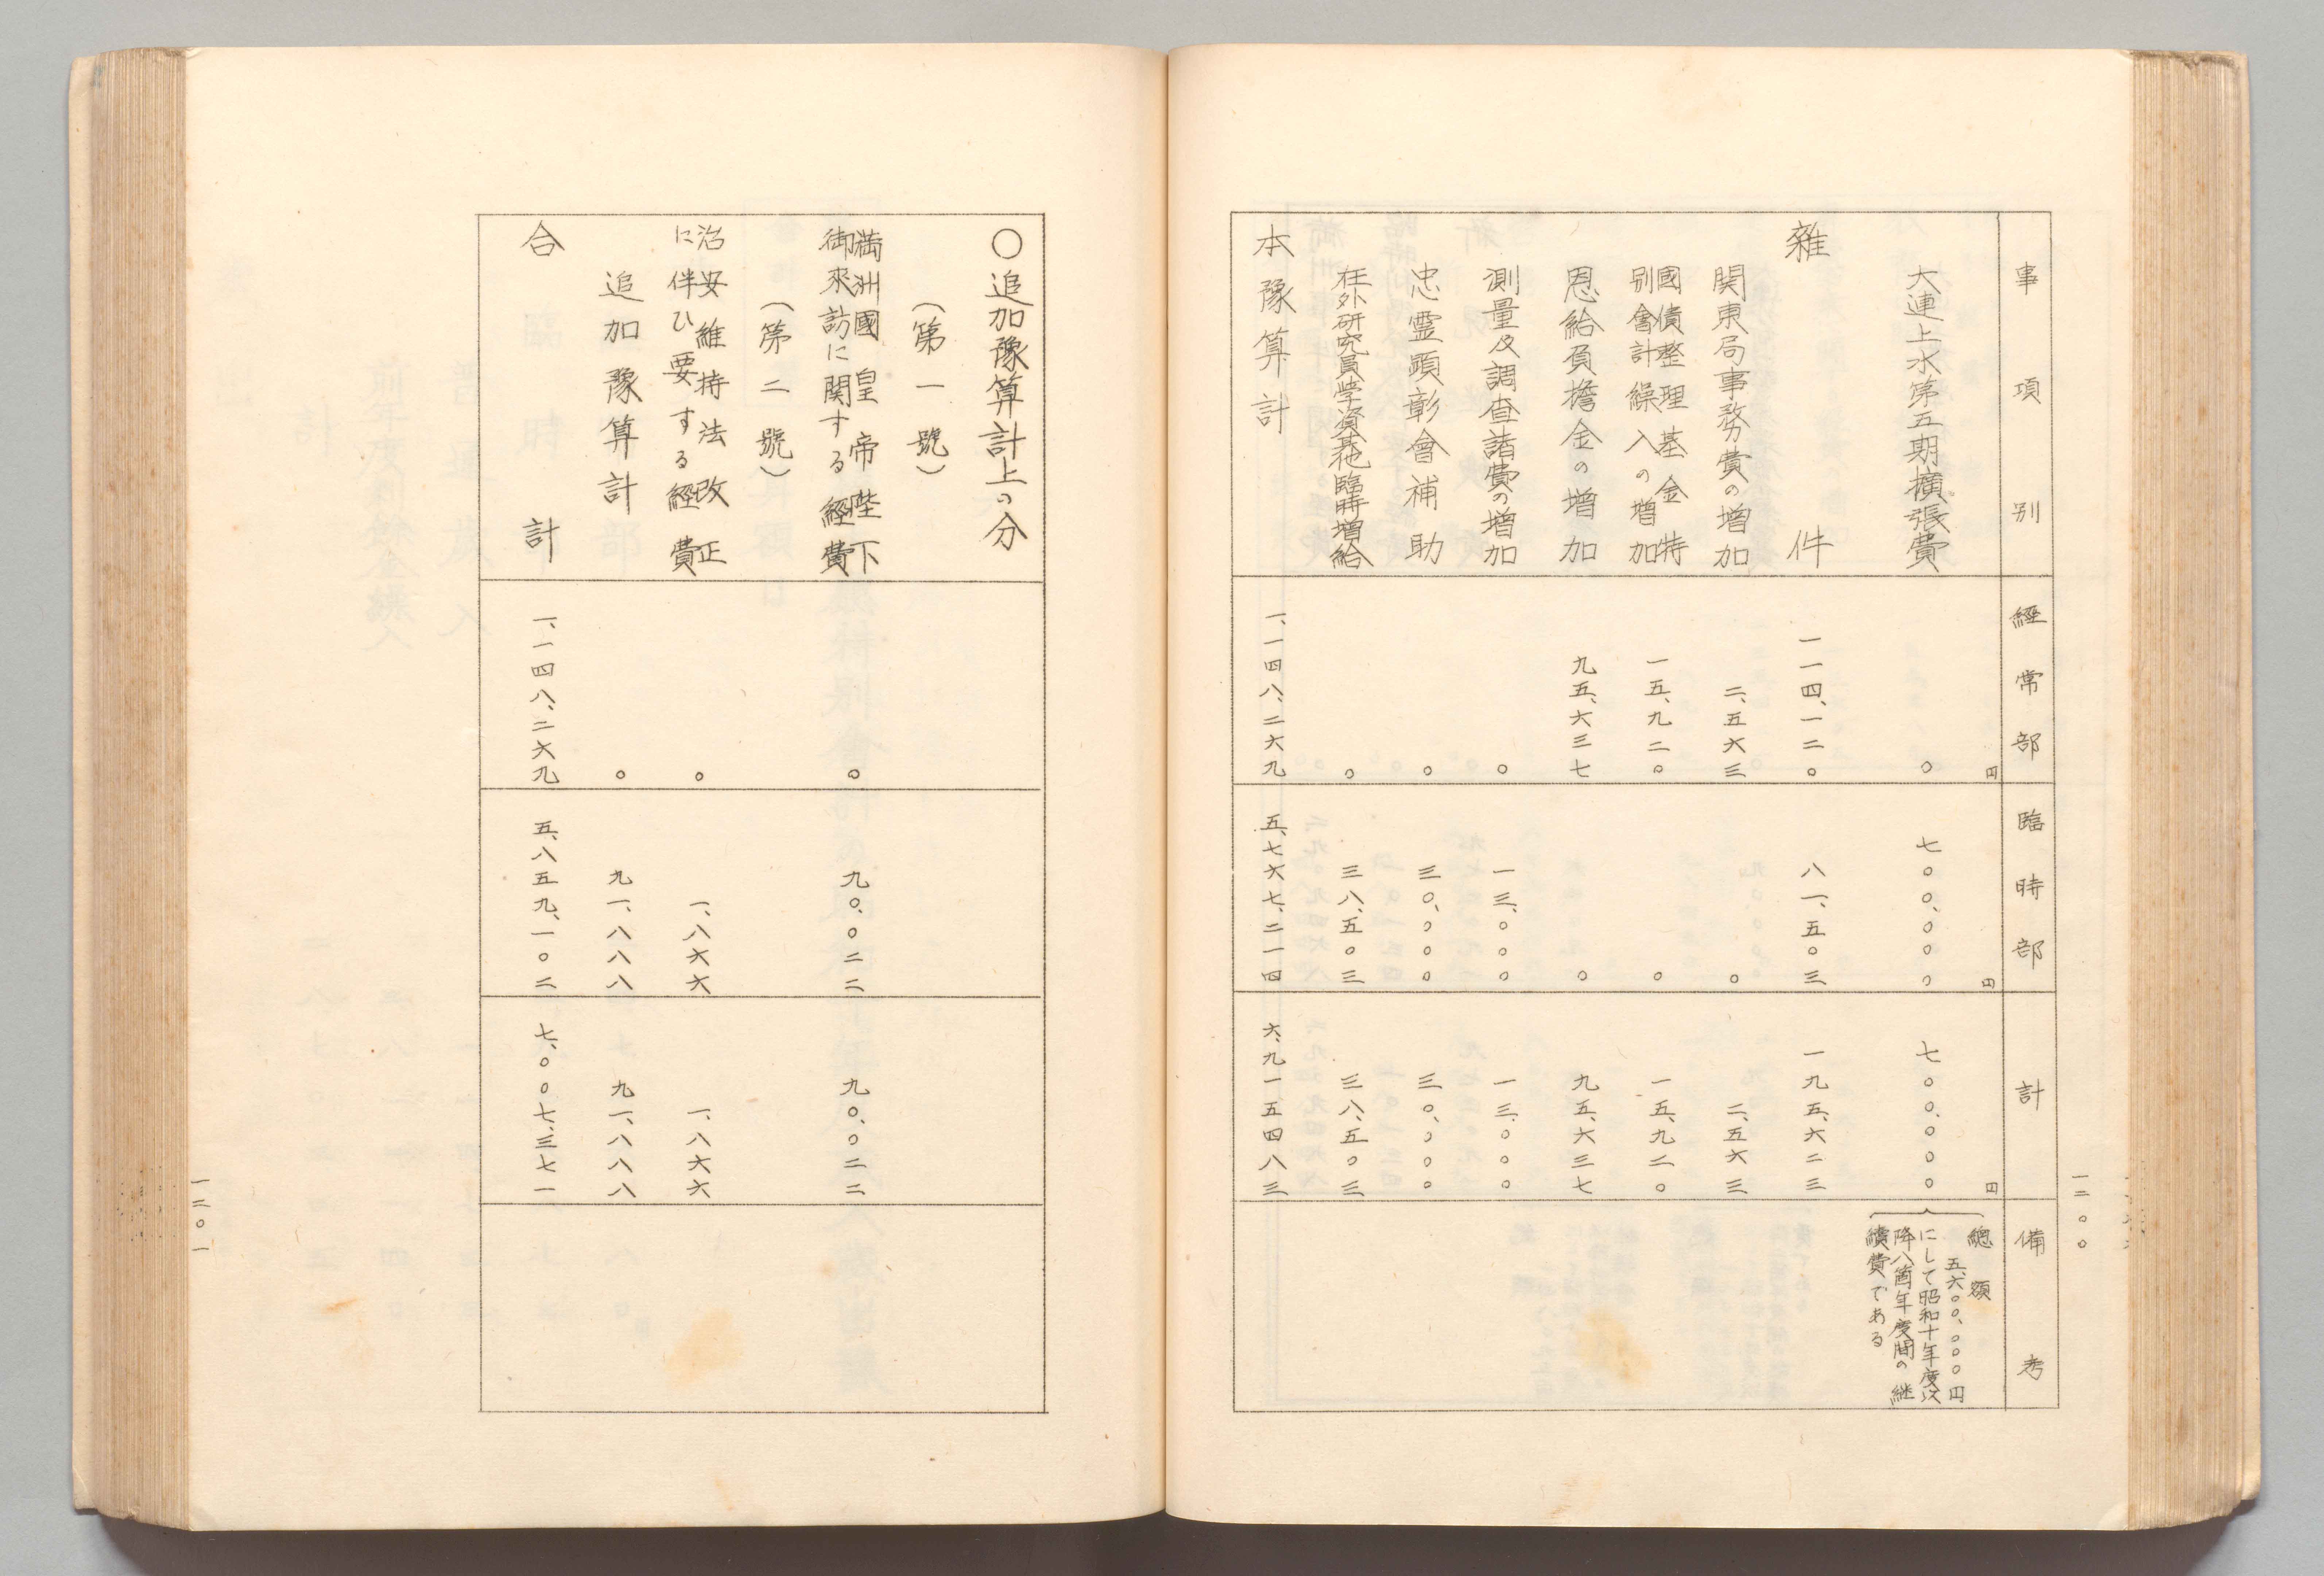 一二〇〇
事項別 經常部 臨時部 計 備考
円 円 円
大連上水第五期擴張費 〇 七〇〇、〇〇〇 七〇〇、〇〇〇
總額
五、六〇〇、〇〇〇円
にして昭和十年度次
降八箇年度間の継
續費である
雜件 一一四、一二〇 八一、五〇三 一九五、六二三
関東局事務費の増加 二、五六三 〇 二、五六三
國債整理基金特
別會計繰入の増加 一五、九二〇 〇 一五、九二〇
恩給負擔金の増加 九五、六三七 〇 九五、六三七
測量及調査諸費の増加 〇 一三、〇〇〇 一三、〇〇〇
忠霊顕彰會補助 〇 三〇、〇〇〇 三〇、〇〇〇
在外研究員学資其他臨時増給 〇 三八、五〇三 三八、五〇三
本豫算計 一、一四八、二六九 五、七六七、二一四 六、九一五、四八三
〇追加豫算計上の分
(第一號)
満洲國皇帝陛下
御來訪に関する經費 〇 九〇、〇二二 九〇、〇二二
(第二號)
治安維持法改正
に伴ひ要する經費 〇 一、八六六 一、八六六
追加豫算計 〇 九一、八八八 九一、八八八
合計 一、一四八、二六九 五、八五九、一〇二 七、〇〇七、三七一
一二〇一